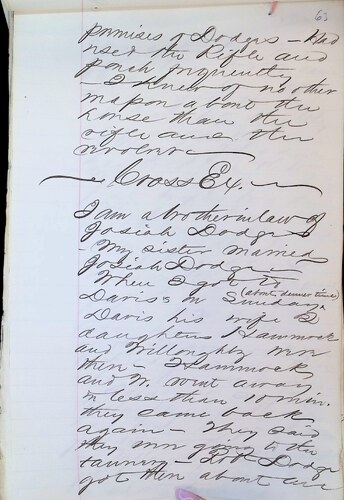 63
premises of Dodges - Had
used the Rifle and
pouch frequently
- I knew of no other
weapon about the
house than the
rifle and the
revolver
Cross Ex.
I am a brother in law of
Josiah Dodge
- My sister married
Josiah Dodge
When I got to
Davis' on Sunday (about dinner time)
Davis his wife & 2
daughters Hammock
and Willoughby were
there - Hammock
and W. went away.
in less than 10 min.
they came back
again - They said
they were going to the
tannery - Dodge
got there about